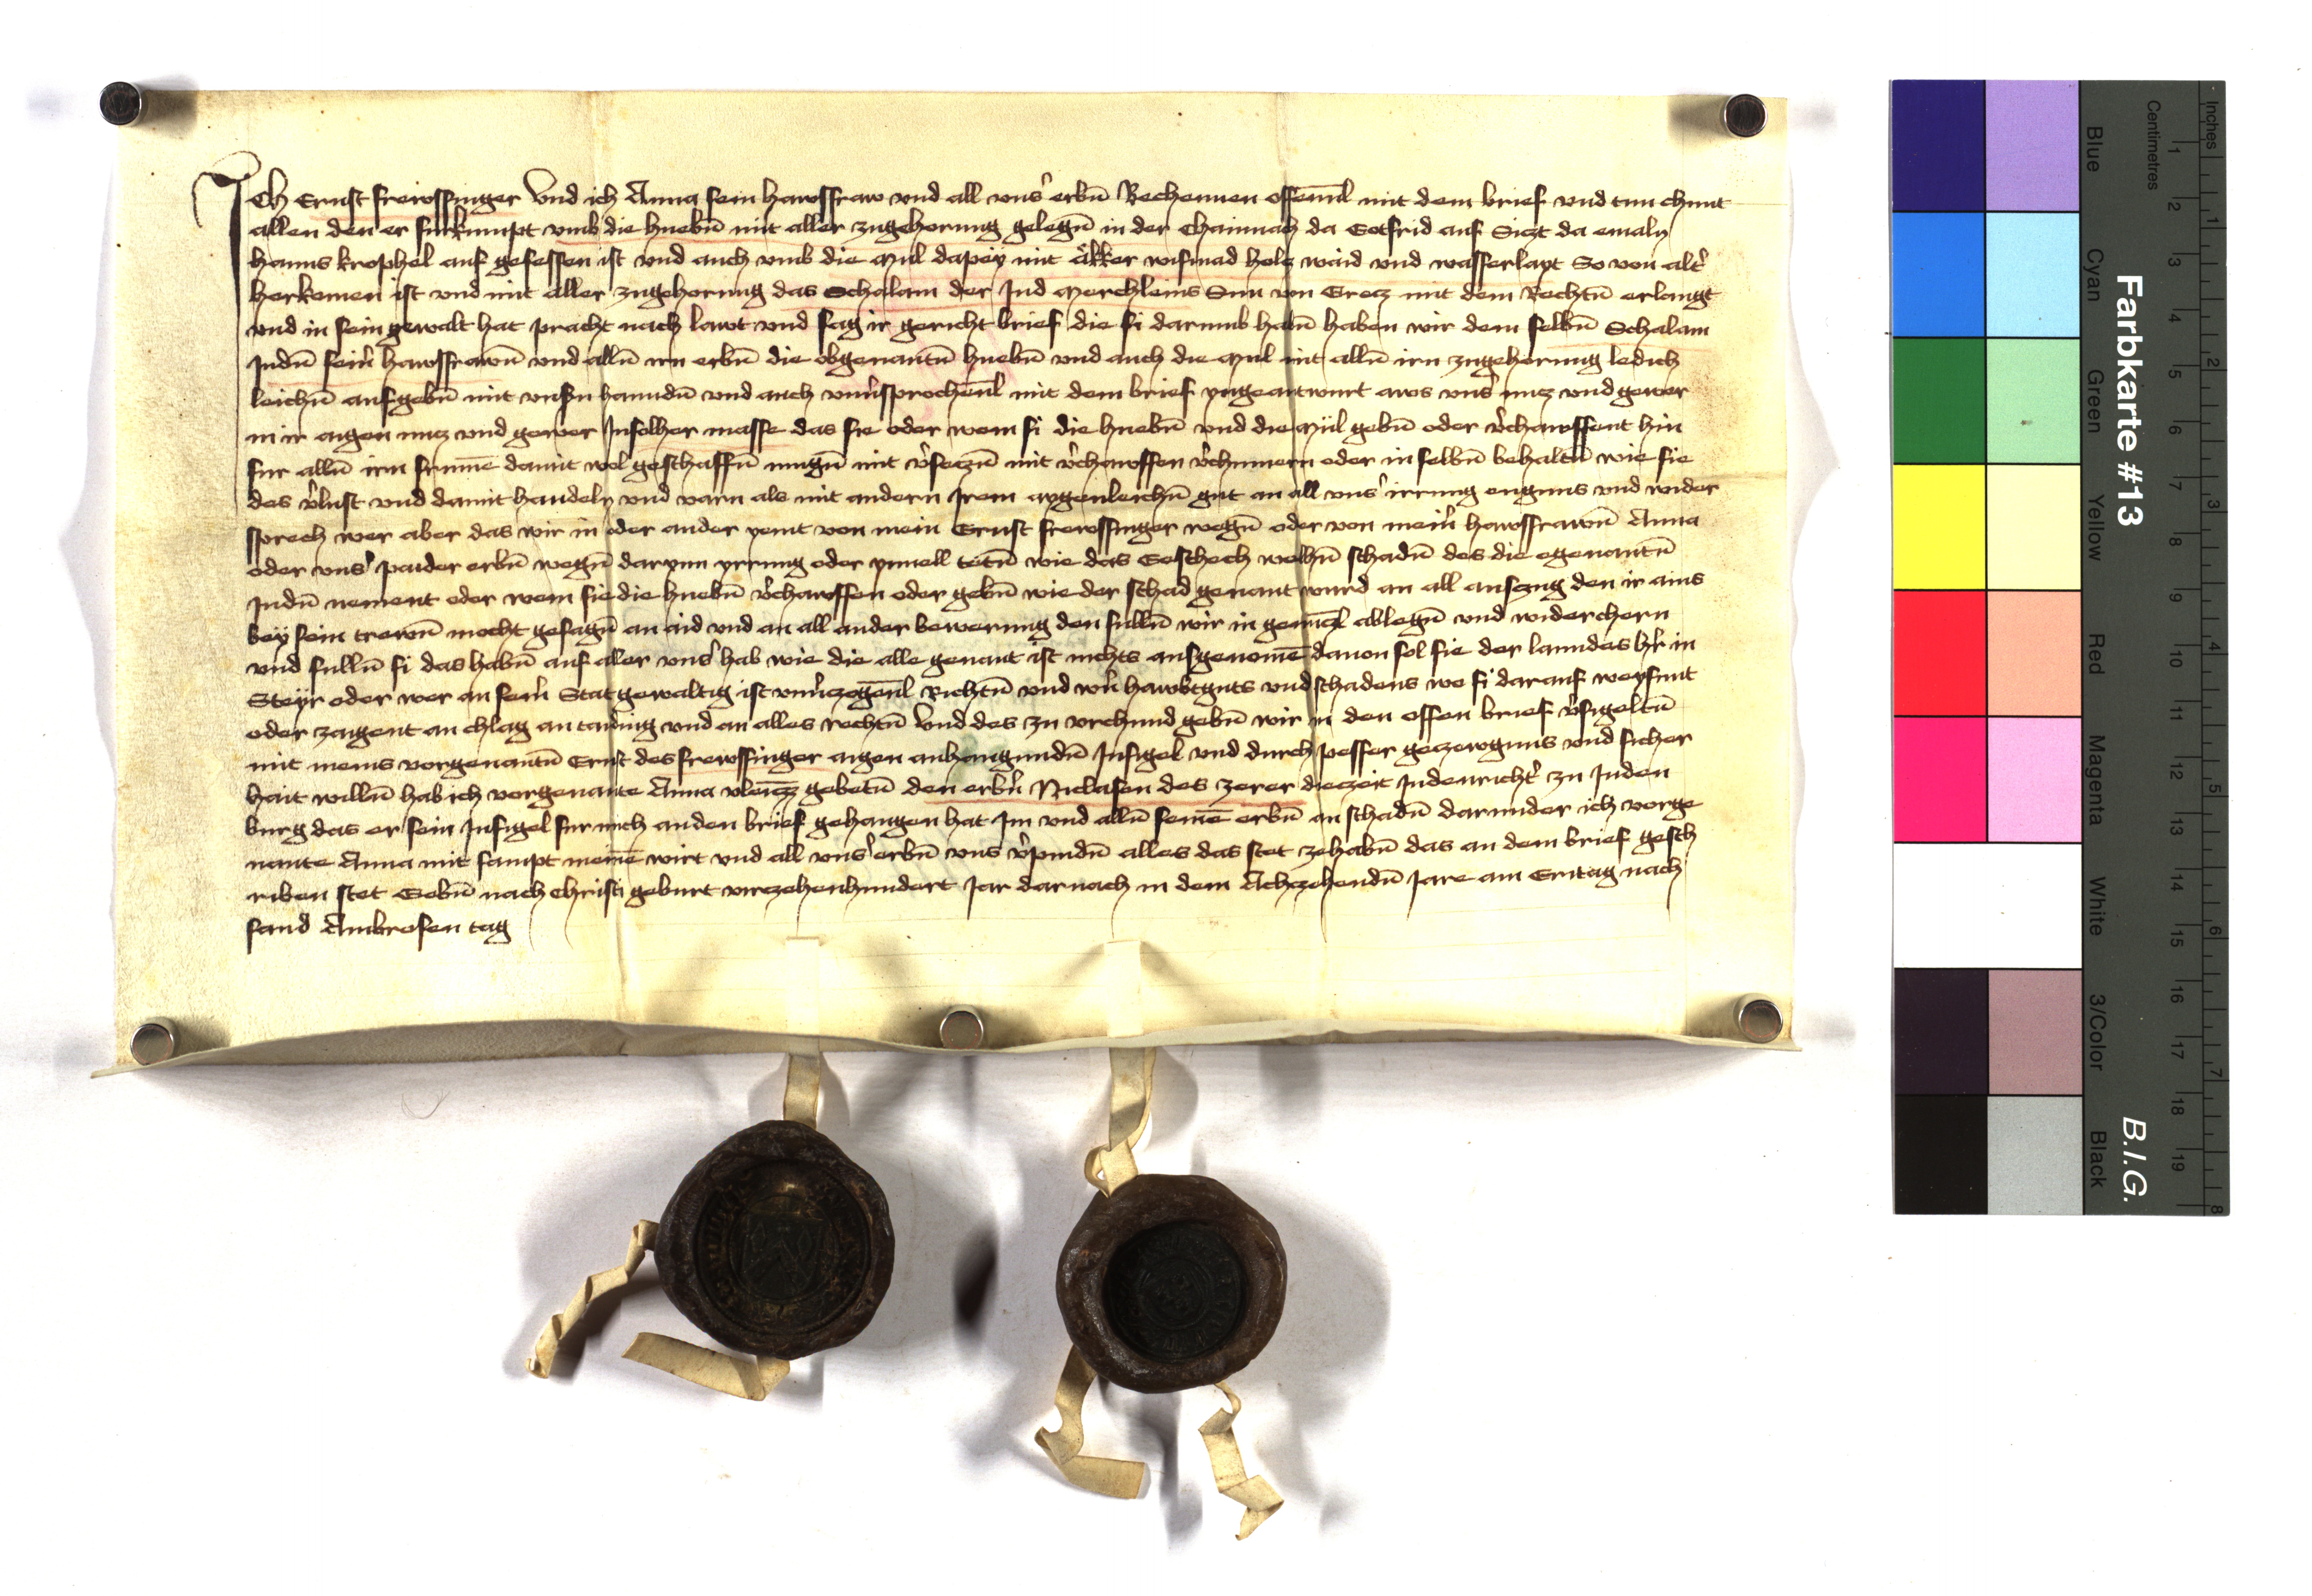 Ich Ernst frewssinger Vnd ich Anna sein hawsfraw vnd all vns' erbn̄ Bechennen offenn̄l mit dem brief vnd tun chunt
allen den er furkumpt vmb die huebn̄ mit aller zugehorung gelegn̄ in der Chainnach da Gotfrid auf Siczt da emaln
hanns krophel auf gesessen ist vnd auch vmb die Mul dapey mit äkker wismad holcz waid vnd wasserlayt So von alt'
herkomen ist vnd mit aller zugehorung das Schalam der Jud Merchleins Sun von Grecz mit dem Rechtn̄ erlangt
vnd in sein gewalt hat pracht nach lawt vnd sag ir gericht brief die si darumb habn̄ haben wir dem selbn̄ Schalam
Judn̄ sein̄ hawsfrawn̄ vnd alln̄ irn erbn̄ die obgenantn̄ huebn̄ vnd auch die Mul mit alln̄ irn zugehorung ledich
leichn̄ aufgebn̄ mit vnsn̄ hanndn̄ vnd auch vnu'sprochenn̄l mit dem brief yngeantwurt aws vns' nucz vnd gewer
in ir aigen nucz vnd gewer Jnsolher masse das sie oder wem si die huebn̄ vnd die Mül gebn̄ oder v'chawffent hin
fur alln̄ irn frumē damit wol geschaffn̄ mugn̄ mit v'seczn̄ mit v'chawffen v'chumern oder in selbn̄ behaltn̄ wie sie
des v'lust vnd damit handeln vnd varn als mit andern Jrem aygenleichn̄ gut an all vns' irrung engnus vnd wider
sprech wer aber das wir in oder ander yemt von mein Ernst frewssinger wegn̄ oder von mein̄ hawsfrawn̄ Anna
oder vns' paider erbn̄ wegn̄ darynn yrrung oder ynuell tetn̄ wie das Geschech welhn̄ schadn̄ des die egenantn̄
Judn̄ nement oder wem sie die huebn̄ v'chawffen oder gebn̄ wie der schad genant wurd an all auszug den ir ains
bey sein trewn̄ mocht gesagn̄ an aid vnd an all ander bewerung den sulln̄ wir in genczl ablegn̄ vnd widerchern
vnd sulln̄ si das habn̄ auf aller vns' hab wie die alle genant ist nichts ausgenomē dauon sol sie der lanndes h'r in
Steyr oder wer an sein̄ Stat gewaltig ist vnu'czogenn̄l Richtn̄ vnd wern̄ hawbtguts vnd schadens wo si darauf weysunt
oder zaigent an chlag an taiding vnd an alles rechtn̄ Vnd des zu vrchund gebn̄ wir in den offen brief v'sigeltn̄
mit meins vorgenantn̄ Ernst des frewssinger aigen anhangundn̄ Jnsigel vnd durch pesser geczewgnus vnd sicher
hait willn̄ hab ich vorgenante Anna vleizz gebetn̄ den erbn̄ Niclasen des zerer dieczeit Judenricht' zu Juden
burg das er sein Jnsigel fur mich an den brief gehangen hat Jm vnd alln̄ seinē erbn̄ an schadn̄ darunder ich vorge
nante Anna mit sampt meinē wirt vnd all vns' erbn̄ vns v'pindn̄ alles das stet zehabn̄ das an dem brief gesch
riben stet Gebn̄ nach Christi geburt virczehenhundert Jar darnach in dem Achzehendn̄ Jare am Eritag nach
sand Ambrosen tag
Farbkarte #13
B.I.G.
Centimetres
Inches
Blue
Cyan
Green
Yellow
Red
Magenta
White
3/Color
Black
1 2 3 4 5 6 7 8 9 10 11 12 13 14 15 16 17 18 19
1 2 3 4 5 6 7 8